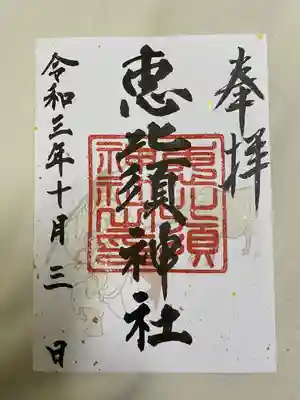 奉拝
恵比須神社
令和三年十月三日